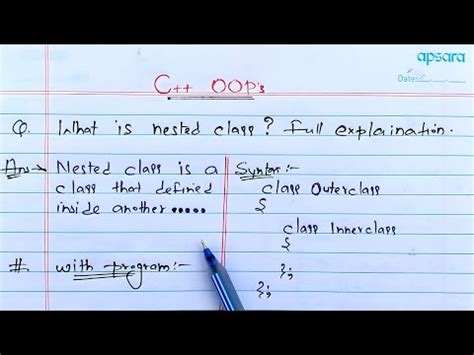 apsara
Date:
C++ OOP's
Q. What is nested class? full explaination.
Ans→ Nested class is a
class that defined
inside another.....
#. with program:-
Syntax:-
class Outerclass
{
class Innerclass
{
};
};